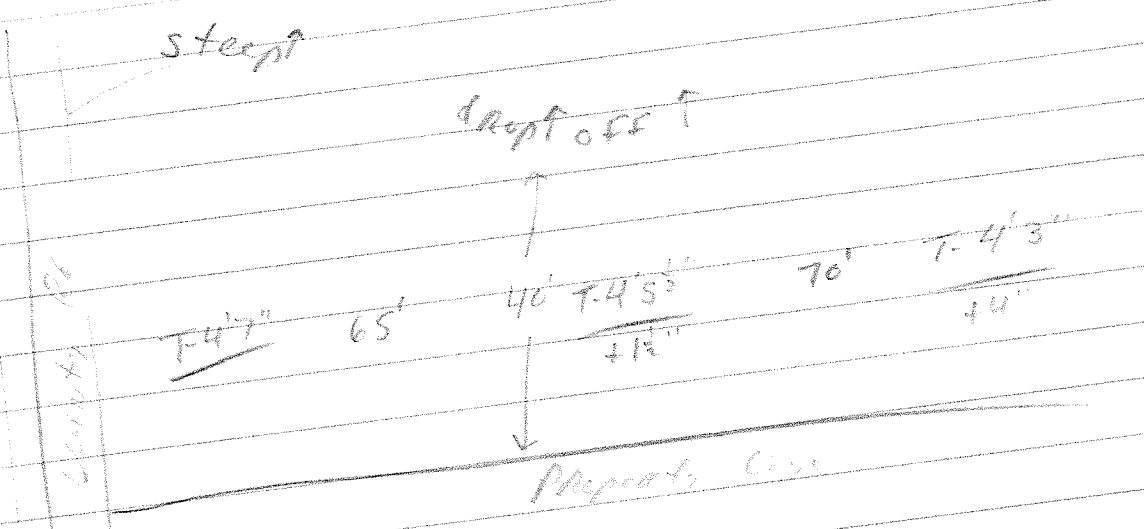 steep↑
drop↑ off ↑
T-4'7" 65' 40' T-4'5½" 70' T-4'3"
+1½" +4"
County Rd
Property Line